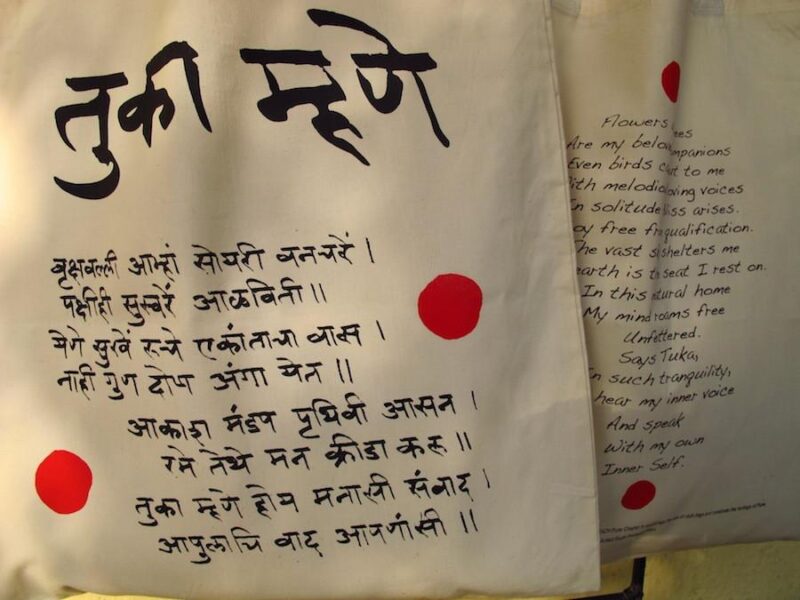 तुका म्हणे
वृक्षवल्ली आम्हां सोयरी वनचरें ।
पक्षीही सुस्वरें आळविती ॥
येणे सुखें रुचे एकांताचा वास ।
नाही गुण दोष अंगा येत ॥
आकाश मंडप पृथिवी आसन ।
रमे तेथे मन क्रीडा करू ॥
तुका म्हणे होय मनासी संवाद ।
आपुलाचि वाद आपणांसी ॥
Flowers
Are my
Even birds to me
With voices
In solitude arises.
Joy free qualification.
The vast shelters me
earth is seat I rest on.
In this home
My mind roams free
Unfettered.
Says Tuka,
In such tranquility,
hear my inner voice
And speak
With my own
Inner Self.